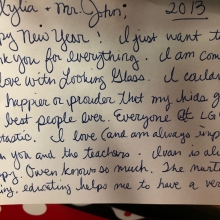 Kylia + Mr. John, 2013
py New Year! I just want t
nk you for everything. I am com
love with Looking Glass. I could
happier or prouder that my kids g
best people ever. Everyone at LG
tastic. I love (and am always
m you and the teachers. Ivan is al
py. Owen knows so much. The
ing, educating helps me to have a ve